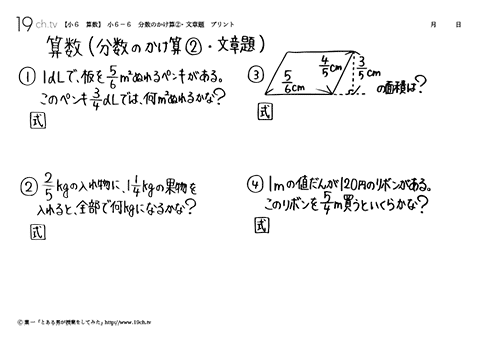 19ch.tv 【小6 算数】 小6-6 分数のかけ算②・文章題 プリント 月 日
算数(分数のかけ算②・文章題)
① 1dLで、板を5/6m²ぬれるペンキがある。
このペンキ3/4dLでは、何m²ぬれるかな?
式
② 2/5kgの入れ物に、1 1/4kgの果物を
入れると、全部で何kgになるかな?
式
③ 5/6cm 4/5cm 3/5cm の面積は?
式
④ 1mの値だんが120円のリボンがある。
このリボンを5/4m買うといくらかな?
式
Ⓒ葉一「とある男が授業をしてみた」http://www.19ch.tv